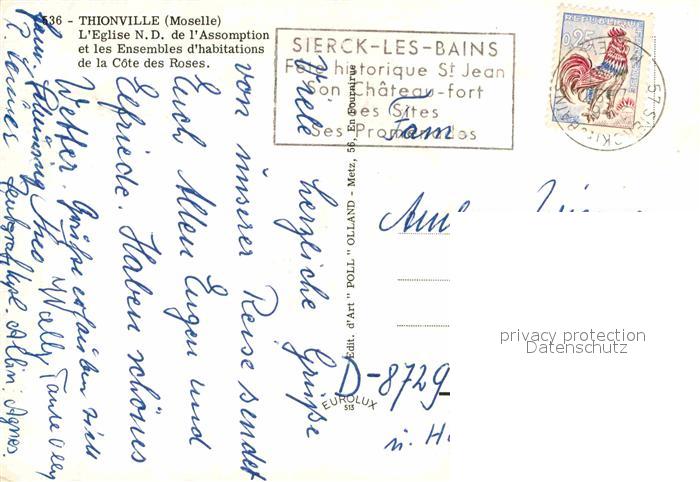 536 - THIONVILLE (Moselle)
L'Eglise N.D. de l'Assomption
et les Ensembles d'habitations
de la Côte des Roses.
SIERCK-LES-BAINS
Fête historique St Jean
Son Château-fort
Ses Sites
Ses Promenades
REPUBLIQUE
0,25
57 SIERCK LES BAINS
Viele herzliche Grüße
von unserer Reise sendet
Euch Allen Eugen und
Elfriede. Haben schönes
Wetter. Grüße
Theo Wally Tante
Albin Agnes.
Edit. d'Art " POLL " OLLAND - Metz, 56, En Fournirue
EUROLUX
515
Fam
D-8729
ü. H
privacy protection
Datenschutz